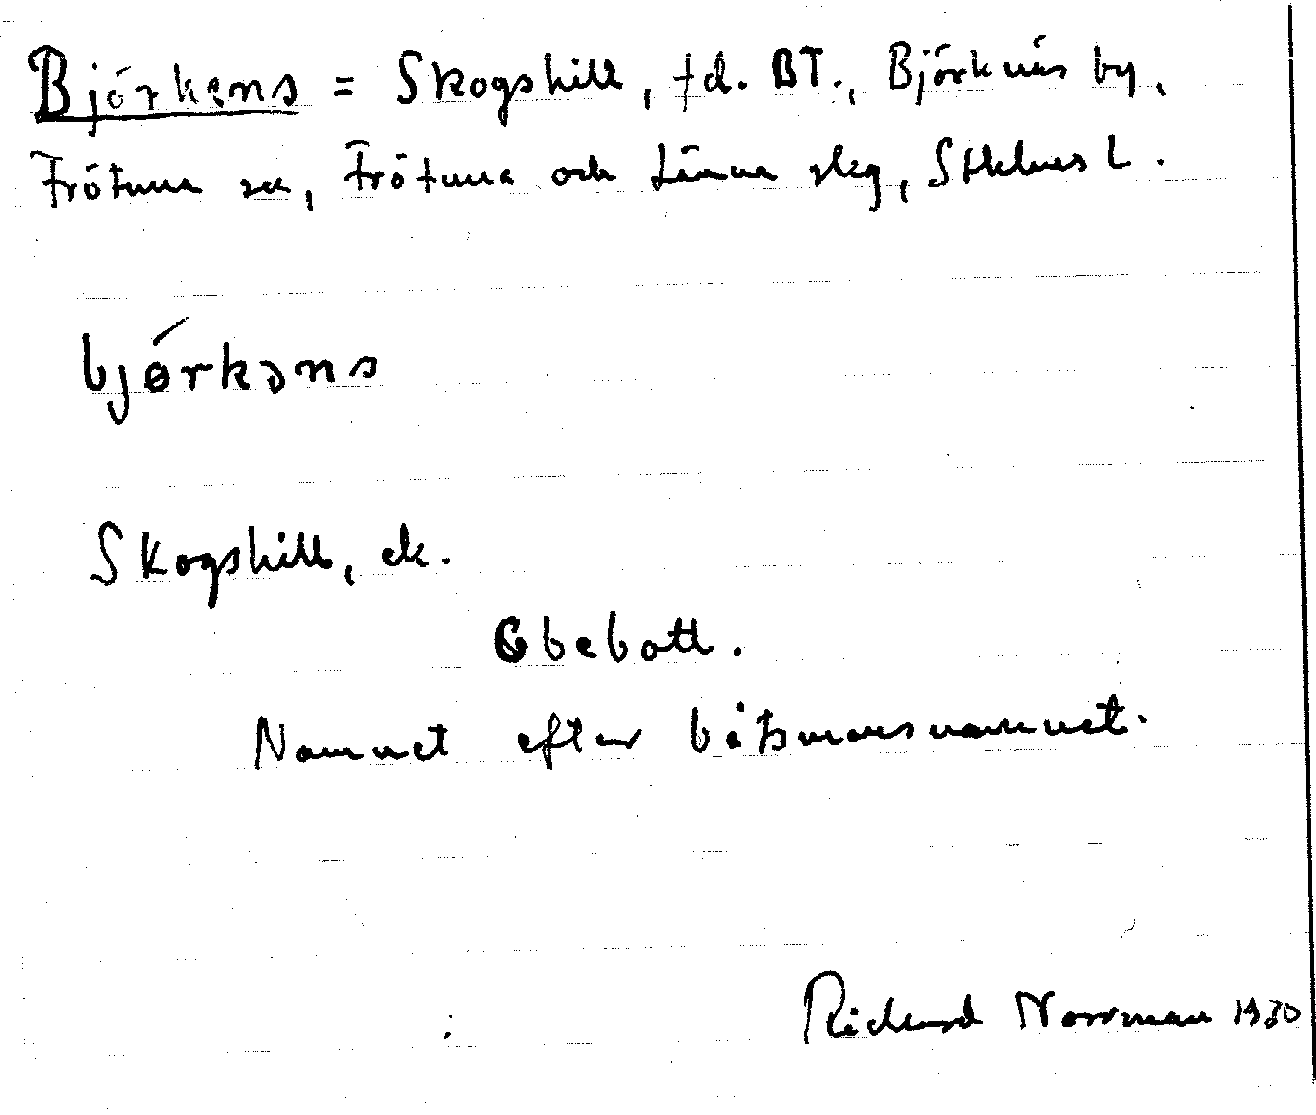 Björkens = Skogshill, fd. BT., Björknäs by,
Frötuna sn, Frötuna och Länna skg, Sthlms L.
bjǿrkəns
Skogshill, ek.
Obebott.
Namnet efter båtsmansnamnet.
Richard Norrman 1930